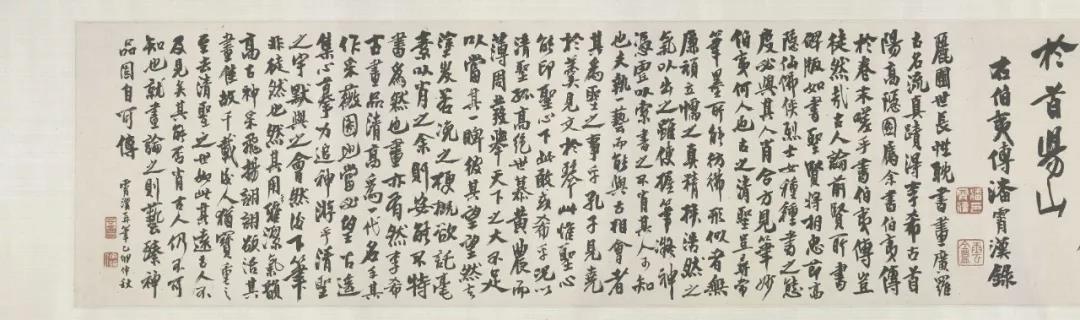 於首陽山
右伯夷傳潘霄漢錄
麗園世長性耽書畫廣羅
古名流真蹟得李希古首
陽高隱圖屬余書伯夷傳
於卷末嗟乎書伯夷傳豈
徒然哉古人論前賢所書
碑版如書聖賢將相忠節高
隱仙佛俠烈士女種種書之態
度必與其人肖合方見筆妙
伯夷何人也古之清聖豈尋常
筆墨所能彷彿形似者無
廉頑立懦之真精抉浩然之
氣以出之雖使握筆凝神
憑靈以索書之不肖其人可知
也夫執一藝而能與古相會者
其為聖之事乎孔子見堯
於羹見文於琴此惟聖心
能印聖心下此敢或希乎況以
清聖孤高絕世慕黃農而
薄周發舉天下之大不足
以當其一睥彼其望望然去
塗炭若浼之梗概欲託毫
素以肖之余則安能不特
書為然也畫亦有然李希
古畫品清高為一代名手其
作采薇圖也當必望古遙
集心摹力追神游乎清聖
之宇默與之會然後下筆
非徒然也然其用雖潔氣韻
高古神采飛揚翩翩欲活其
畫故千載後人猶寶重之
至去清聖之世如此其遠古人不
及見矣其解否肖古人仍不可
知也就畫論之則藝臻神
品固自可傳
霄漢筆乙卯仲秋